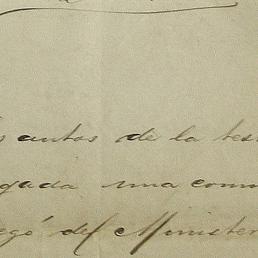 s autos de la tes
gada una com
egó del Minister